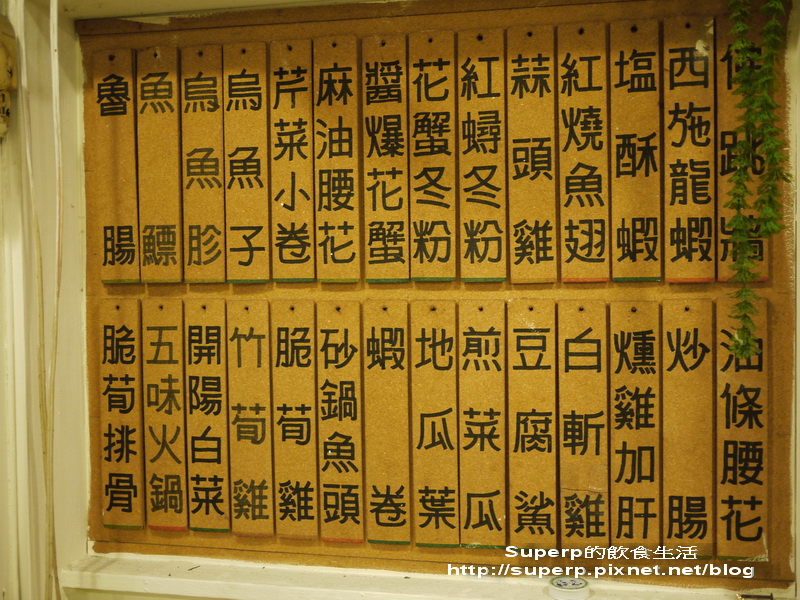 佛跳牆
西施龍蝦
塩酥蝦
紅燒魚翅
蒜頭雞
紅蟳冬粉
花蟹冬粉
醬爆花蟹
麻油腰花
芹菜小卷
烏魚子
烏魚胗
魚鰾
魯腸
油條腰花
炒腸
燻雞加肝
白斬雞
豆腐鯊
煎菜瓜
地瓜葉
蝦卷
砂鍋魚頭
脆荀雞
竹荀雞
開陽白菜
五味火鍋
脆荀排骨
Superp的飲食生活
http://superp.pixnet.net/blog